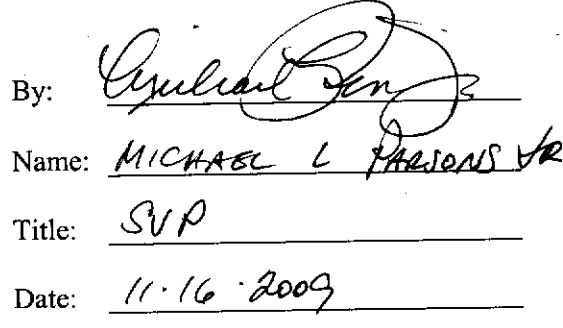 By:
Name: MICHAEL L PARSONS JR
Title: SVP
Date: 11·16·2009